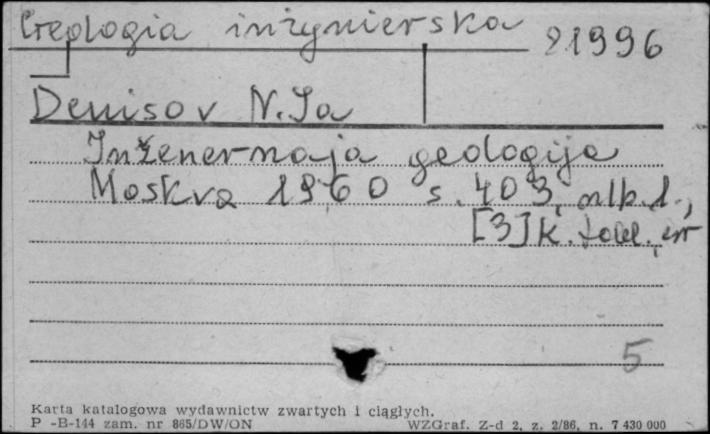 Geologia inżynierska 21996
Denisov N. Ja
Inženernaja geologija
Moskva 1960 s. 403, nlb. 1.,
[3] k. tabl.,
5
Karta katalogowa wydawnictw zwartych i ciągłych.
P -B-144 zam. nr 865/DW/ON WZGraf. Z-d 2, z. 2/86, n. 7 430 000